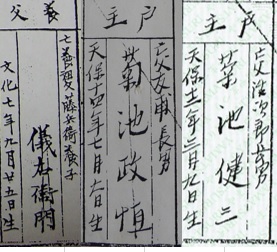 戸主
亡父治次郎長男
菊池健三
天保十二年三月九日生
戸主
亡父友甫長男
菊池政慎
天保十四年七月六日生
義父
亡養祖父藤兵衛養子
儀右衛門
文化七年九月廿五日生